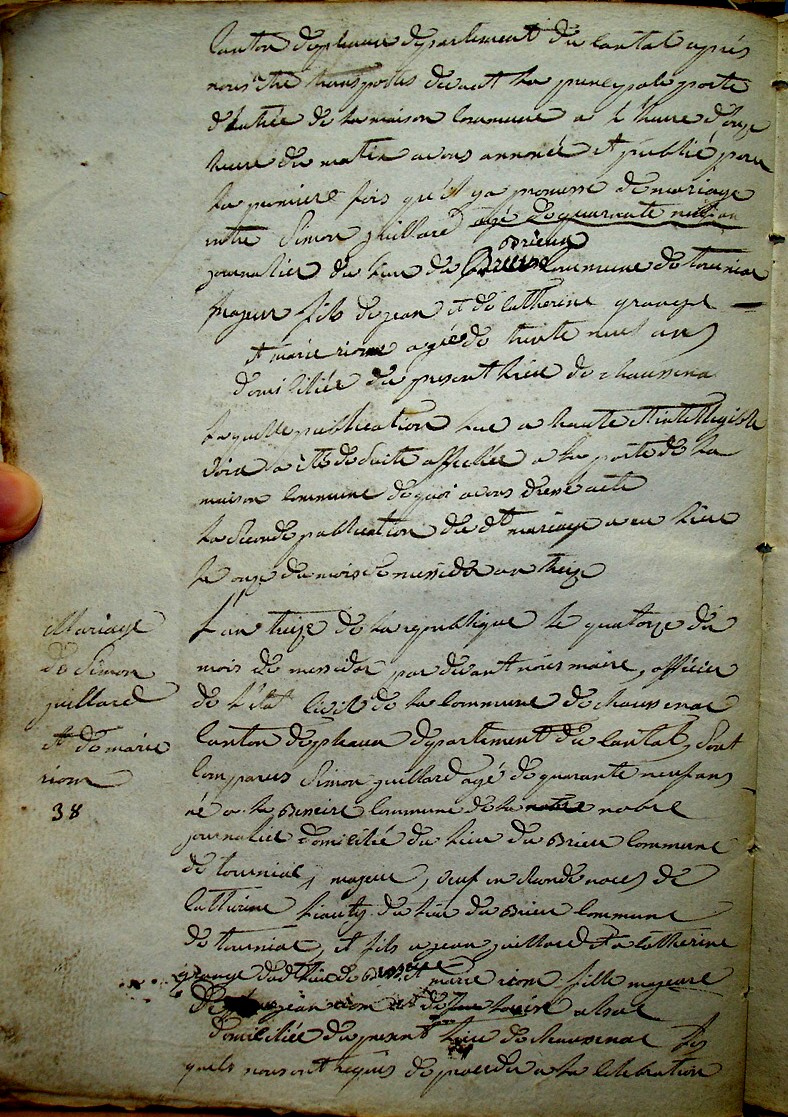 Canton de pleaux departement du Cantal apres
nous etre transportes devant la principale porte
d'entrée de la maison Commune a l'heure d'onze
heure du matin avons annoncé et publié pour
la premiere fois qu'il y a promesse de mariage
entre Simon juillard agé de quarante neuf an
journalier du lieu du Brieu Commune de tourniac
majeur fils de jean et de Catherine grange
et marie riom agée de trente neuf ans
domiciliée du present lieu de chaussenac
laquelle publication lue a haute et intelligible
voix a été de suite affichée a la porte de la
maison Commune de quoi avons dressé acte
la seconde publication du dt mariage a eu lieu
le onze du mois de messidor an treize
Mariage
de Simon
juillard
et de marie
riom
38
L'an treize de la republique le quatorze du
mois de messidor par devant nous maire, officier
de l'etat Civil de la Commune de chaussenac
Canton de pleaux departement du Cantal, sont
Comparus Simon juillard agé de quarante neuf ans
né a la Commune de la nobre
journalier domicilié du lieu du Brieu Commune
de tourniac, majeur, veuf en seconde noces de
Catherine du lieu du Brieu Commune
de tourniac, et fils a jean juillard et a Catherine
grange dudt lieu de et marie riom fille majeure
de jean riom et de
domiciliée du present lieu de chaussenac les
quels nous ont requis de proceder a la celebration